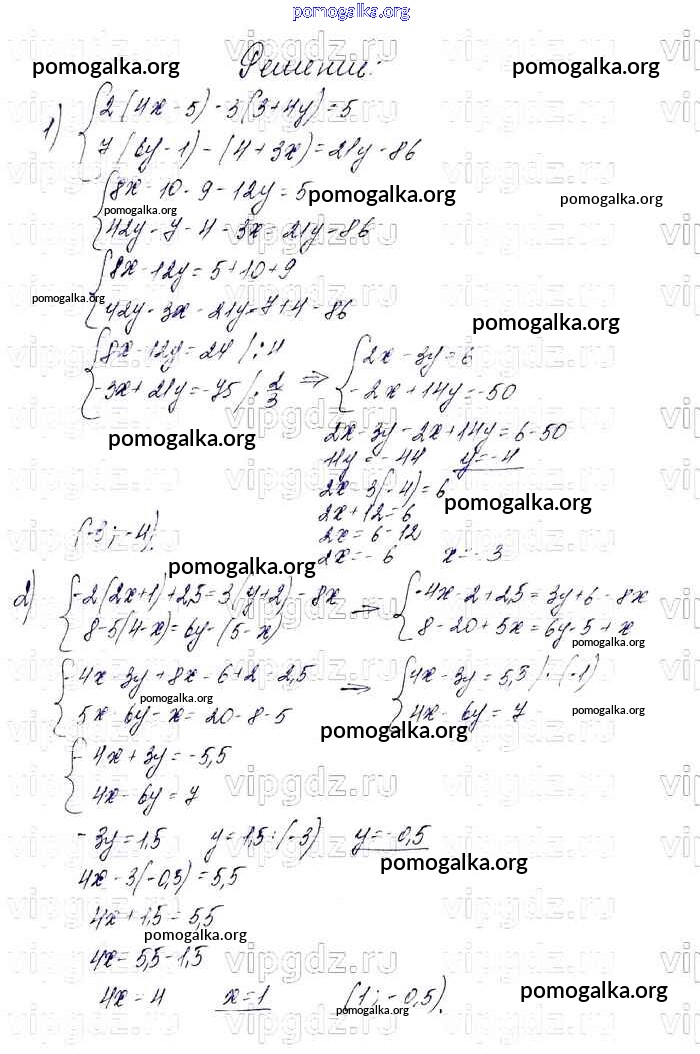 pomogalka.org
Решение:
pomogalka.org pomogalka.org
1) { 2(4x - 5) - 3(3 + 4y) = 5
7(6y - 1) - (4 + 3x) = 21y - 86
{ 8x - 10 - 9 - 12y = 5
pomogalka.org pomogalka.org pomogalka.org
42y - 7 - 4 - 3x = 21y - 86
{ 8x - 12y = 5 + 10 + 9
pomogalka.org
42y - 3x - 21y = 7 + 4 - 86
pomogalka.org
{ 8x - 12y = 24 / : 4
- 3x + 21y = -75 / : 2/3
⇒ { 2x - 3y = 6
- 2x + 14y = -50
pomogalka.org
2x - 3y - 2x + 14y = 6 - 50
11y = -44 y = -4
2x - 3(-4) = 6
pomogalka.org
2x + 12 = 6
2x = 6 - 12
2x = -6 x = -3
(-3; -4).
pomogalka.org
2) { -2(2x+1) + 2,5 = 3(y+2) - 8x
8 - 5(4 - x) = 6y - (5 - x)
⇒ { -4x - 2 + 2,5 = 3y + 6 - 8x
8 - 20 + 5x = 6y - 5 + x
pomogalka.org
{ -4x - 3y + 8x = 6 + 2 - 2,5
pomogalka.org
5x - 6y - x = 20 - 8 - 5
⇒ { 4x - 3y = 5,5 / · (-1)
4x - 6y = 7
pomogalka.org
pomogalka.org
{ - 4x + 3y = -5,5
4x - 6y = 7
- 3y = 1,5 y = 1,5 : (-3) y = -0,5
pomogalka.org
4x - 3(-0,5) = 5,5
4x + 1,5 = 5,5
pomogalka.org
4x = 5,5 - 1,5
4x = 4 x = 1 (1; -0,5).
pomogalka.org
vipgdz.ru